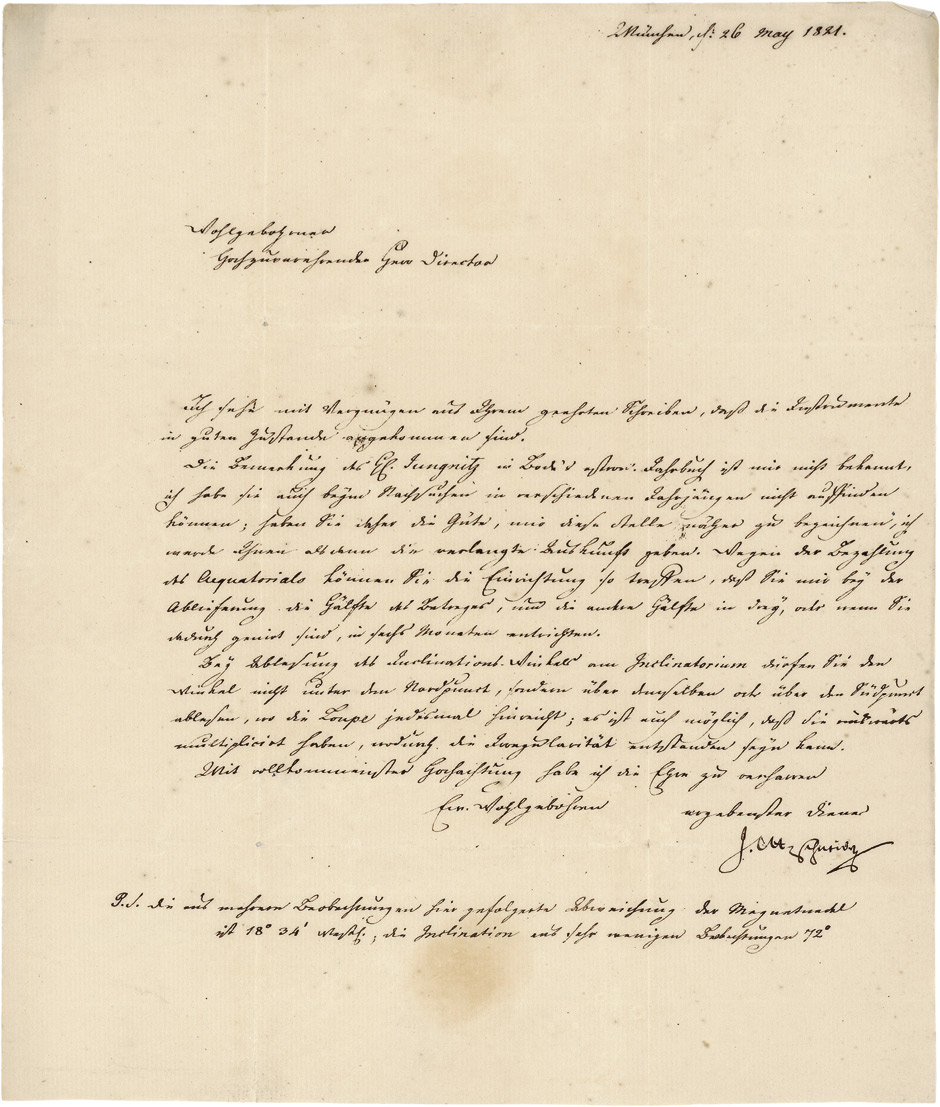 München, d: 26 May 1821.
Wohlgebohrner
Hochzuverehrender Herr Director
Ich sehe mit Vergnügen aus Ihrem geehrten Schreiben, daß die Instrumente
in guten Zustande angekommen sind.
Die Bemerkung des H. Jungnitz in Bode's astron. Jahrbuch ist mir nicht bekannt,
ich habe sie auch beym Nachsuchen in verschiedenen Jahrgängen nicht auffinden
können; haben Sie daher die Güte, mir diese Stelle näher zu bezeichnen, ich
werde Ihnen alsdenn die verlangte Auskunft geben. Wegen der Bezahlung
des Aequatorials können Sie die Einrichtung so treffen, daß Sie mir bey der
Ablieferung die Hälfte des Betrages, und die andere Hälfte in drey, oder wenn Sie
dadurch genirt sind, in sechs Monaten entrichten.
Bey Ablesung des Inclinations-Winkels am Inclinatorium dürfen Sie den
Winkel nicht unter dem Nordpunct, sondern über demselben oder über den Südpunct
ablesen, wo die Loupe jedesmal hinreicht; es ist auch möglich, daß Sie rückwärts
multiplicirt haben, wodurch die Irregularität entstanden seyn kann.
Mit vollkommenster Hochachtung habe ich die Ehre zu verharren
Euer Wohlgebohren
ergebenster Diener
J. Utzschneider
P.S. Die aus mehrern Beobachtungen hier gefolgerte Abweichung der Magnetnadel
ist 18° 34' westl; die Inclination aus sehr wenigen Beobachtungen 72°